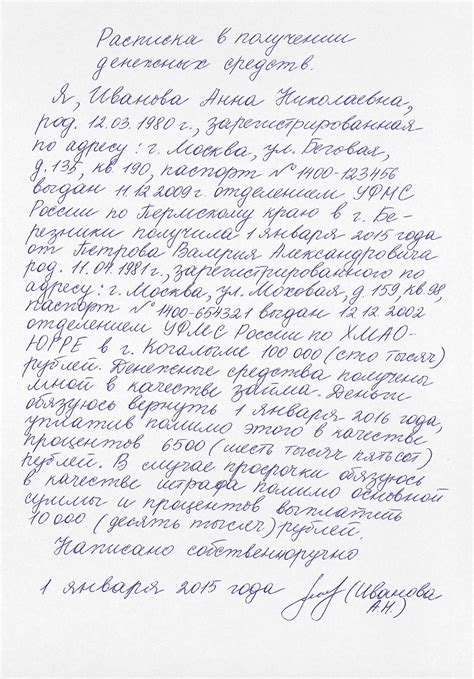 Расписка в получении
денежных средств.
Я, Иванова Анна Николаевна,
род. 12.03.1980 г., зарегистрированная
по адресу: г. Москва, ул. Беговая,
д. 135, кв. 190, паспорт № 1400-123456
выдан 11.12.2009г. отделением УФМС
России по Пермскому краю в г. Бе-
резники получила 1 января 2015 года
от Петрова Валерия Александровича
род. 11.07.1981г., зарегистрированного по
адресу: г. Москва, ул. Моховая, д. 159, кв. 98,
паспорт № 1400-654321 выдан 12 12 2002
отделением УФМС России по ХМАО-
ЮГРЕ в г. Когалыме 100 000 (сто тысяч)
рублей. Денежные средства получены
мной в качестве займа. Деньги
обязуюсь вернуть 1 января 2016 года,
уплатив помимо этого в качестве
процентов 6500 (шесть тысяч пятьсот)
рублей. В случае просрочки обязуюсь
в качестве штрафа помимо основной
суммы и процентов выплатить
10 000 (десять тысяч) рублей.
Написано собственноручно
1 января 2015 года (Иванова
А.Н.)